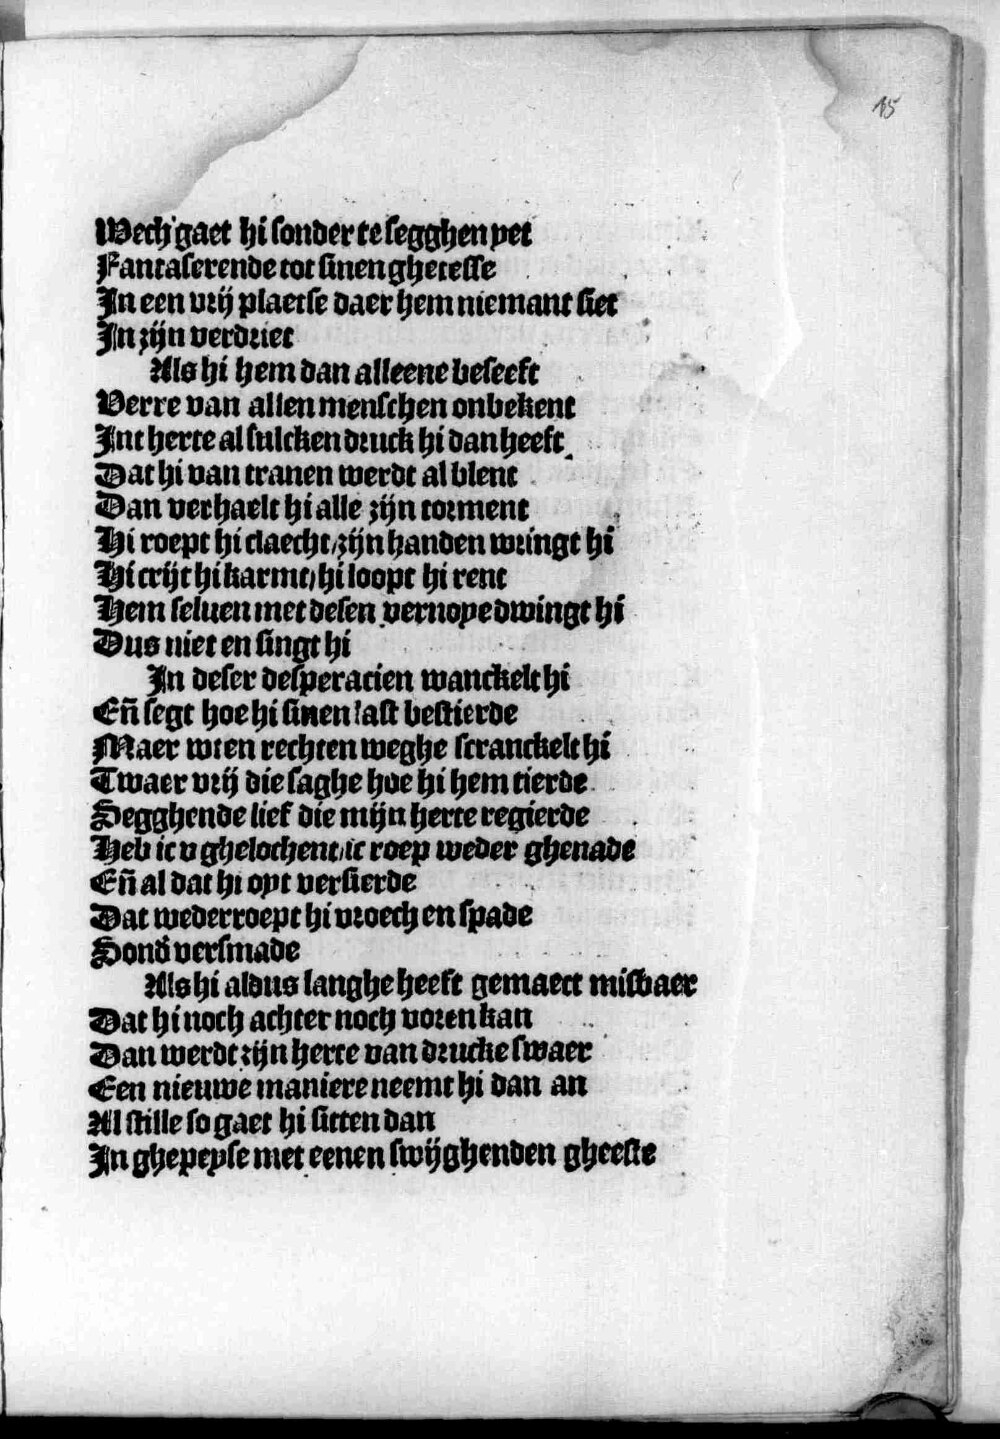 15
Wech gaet hi sonder te segghen yet
Fantaserende tot sinen ghetesse
In een vrij plaetse daer hem niemant siet
In zijn verdriet
Als hi hem dan alleene beseeft
Verre van allen menschen onbekent
Int herte al sulcken druck hi dan heeft
Dat hi van tranen werdt al blent
Dan verhaelt hi alle zijn torment
Hi roept hi claecht/zijn handen wringt hi
Hi crijt hi karmt/hi loopt hi rent
Hem seluen met desen vernoye dwingt hi
Dus niet en singt hi
In deser desperacien wanckelt hi
Eñ segt hoe hi sinen last bestierde
Maer wten rechten weghe scranckelt hi
Twaer vrij die saghe hoe hi hem tierde
Segghende lief die mijn herte regierde
Heb ic v ghelochent/ic roep weder ghenade
Eñ al dat hi oyt versierde
Dat wederroept hi vroech en spade
Sonđ versmade
Als hi aldus langhe heeft gemaect misbaer
Dat hi noch achter noch voren kan
Dan werdt zijn herte van drucke swaer
Een nieuwe maniere neemt hi dan an
Al stille so gaet hi sitten dan
In ghepeyse met eenen swijghenden gheeste